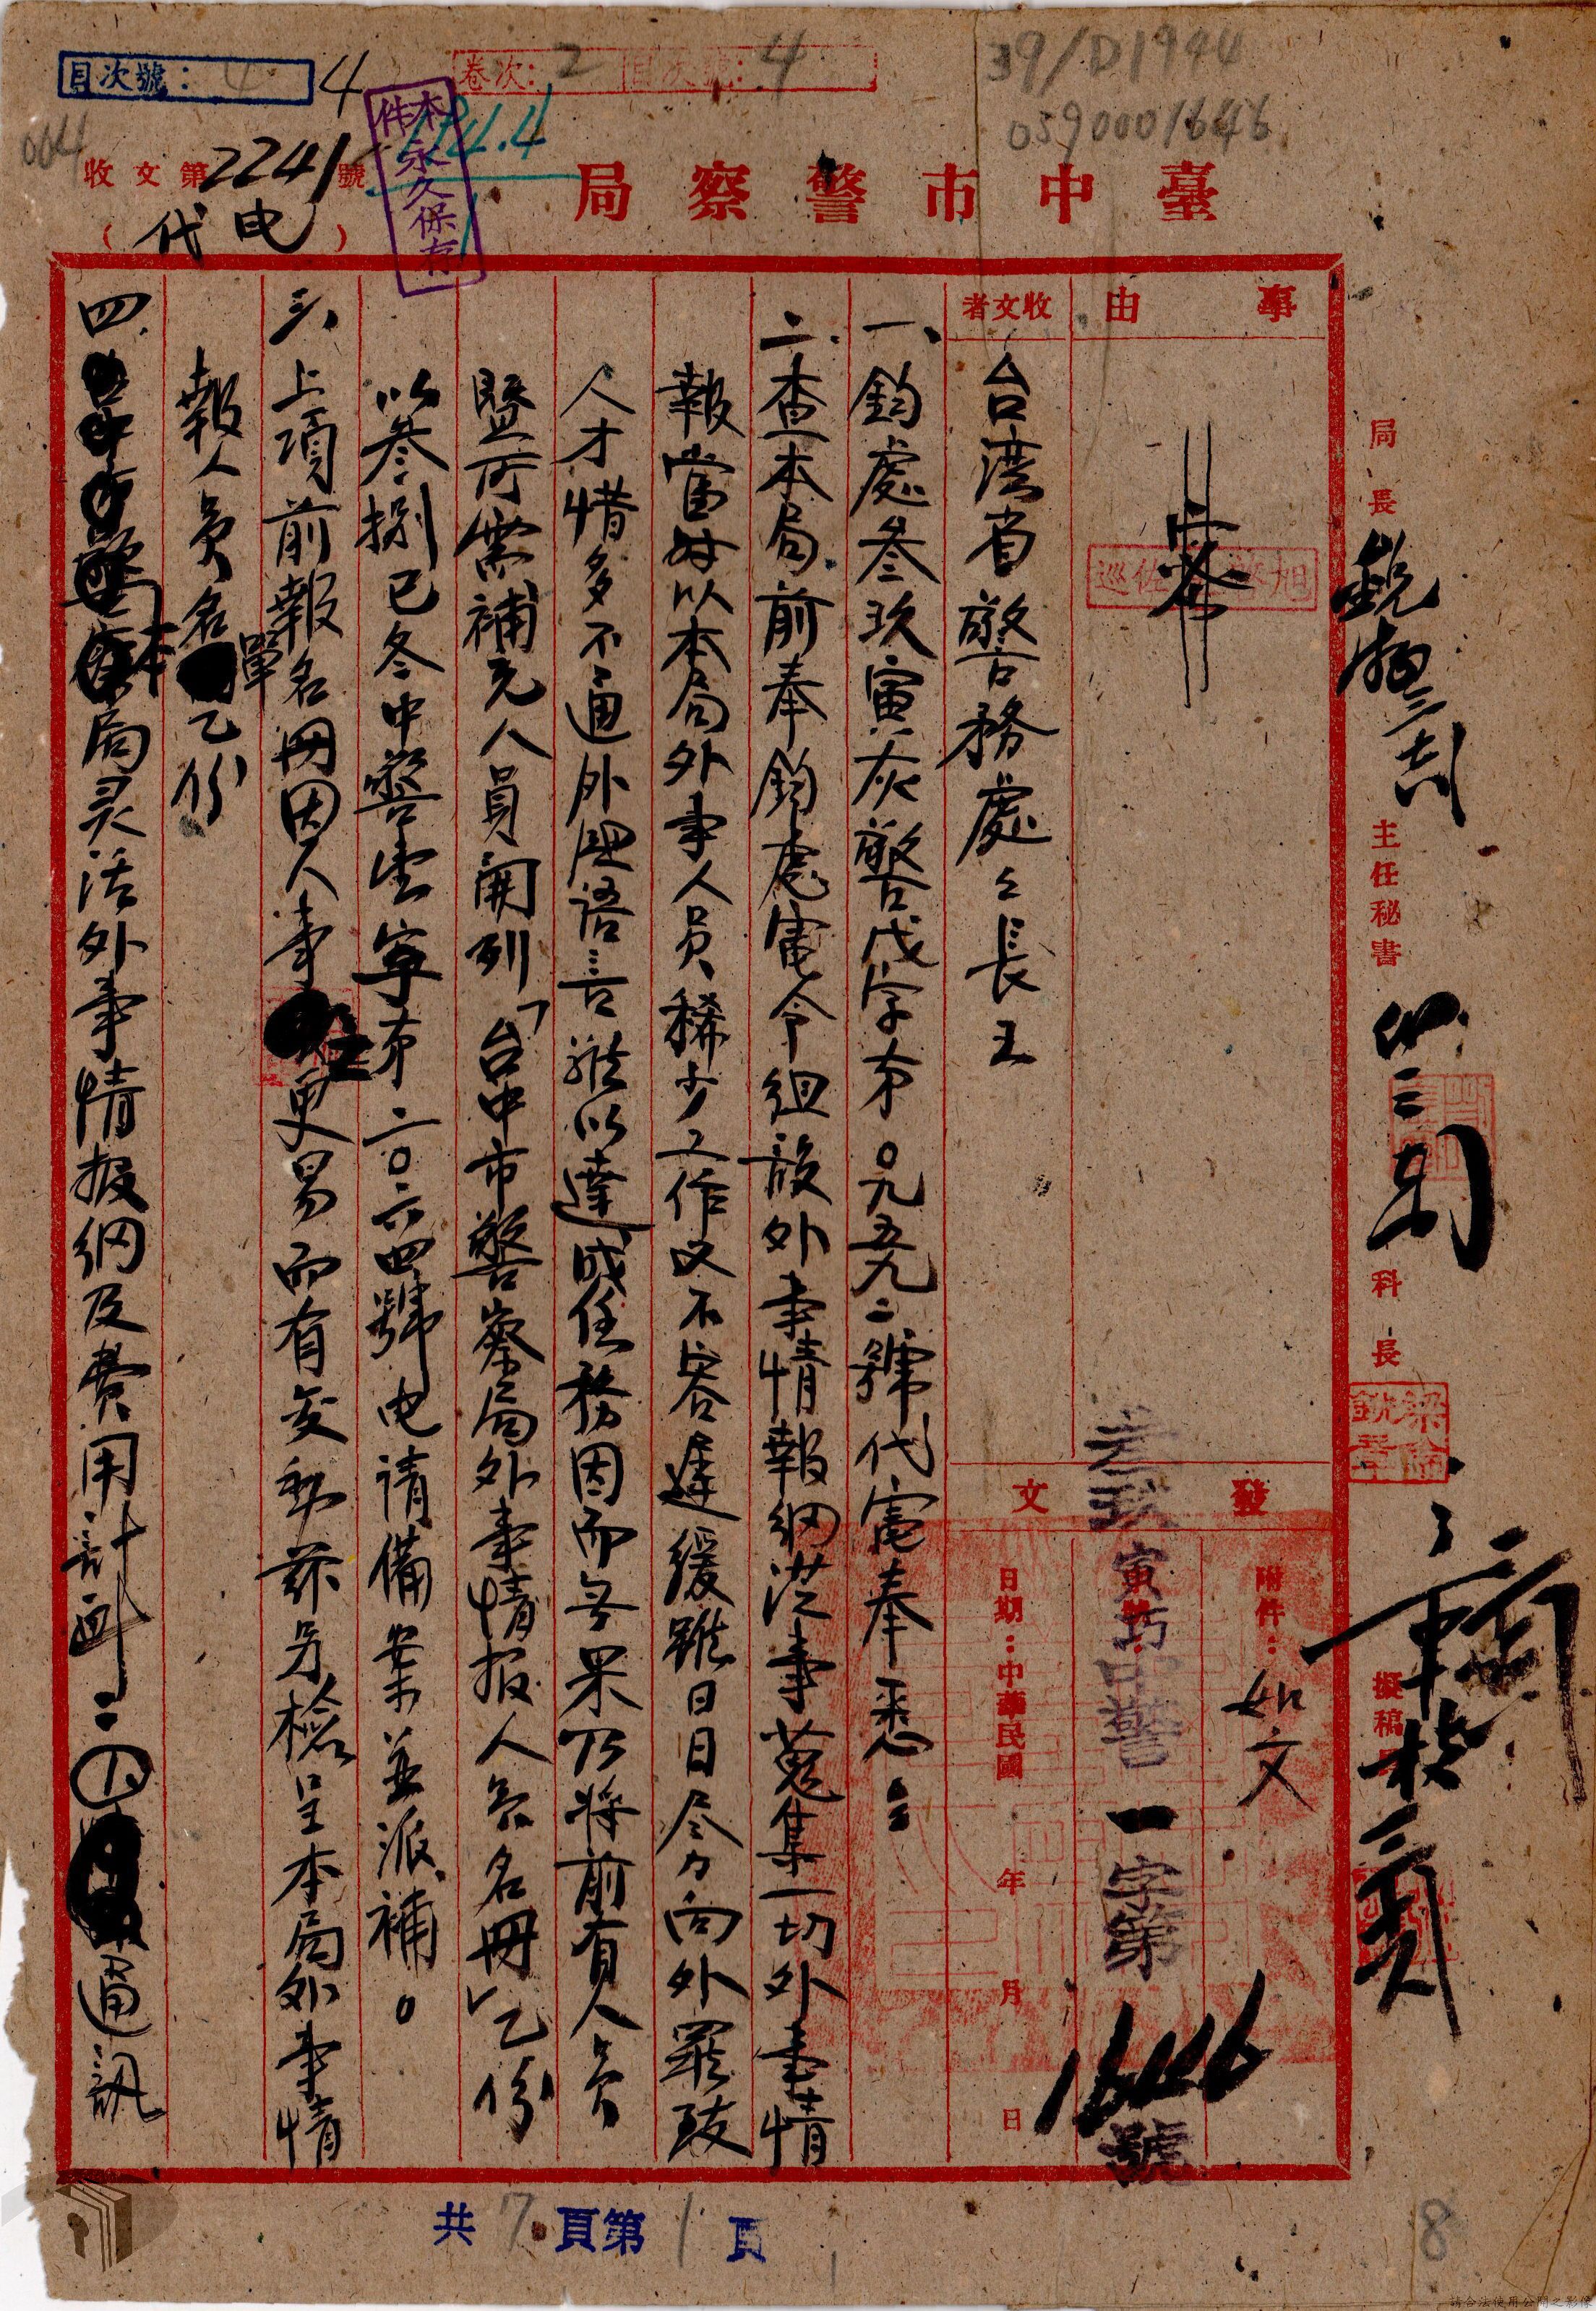 目次號：4
4
卷次：2 目次號：4
194.4
39/D1944
0590001646
004
收文第2241號
（代电）
本件永久保存
臺中市警察局
事由
收文者
台湾省警務處處長王
發文
附件：如文
叁玖寅巧中警一字第1646號
日期：中華民國 年 月 日
一、鈞處叁玖寅灰警戌字第〇九五九二號代電奉悉
二、查本局前奉鈞處電令組設外事情報網從事蒐集一切外事情
報當時以本局外事人員稀少工作又不容遲緩雖日日尽力向外羅致
人才惜多不通外國語言难以達成任務因而無果乃將前有人員
暨所需補充人員開列「台中市警察局外事情报人員名冊」乙份
以叁捌巳冬中警書字第二〇六四號电请備案並派補。
三、上項前報名冊因人事更易而有变動茲另檢呈本局外事情
報人員名單乙份
四、本局灵活外事情报網及費用計画二通訊
局長
主任秘書
科長
擬稿
共7頁第1頁
8
請合法使用公開之影像